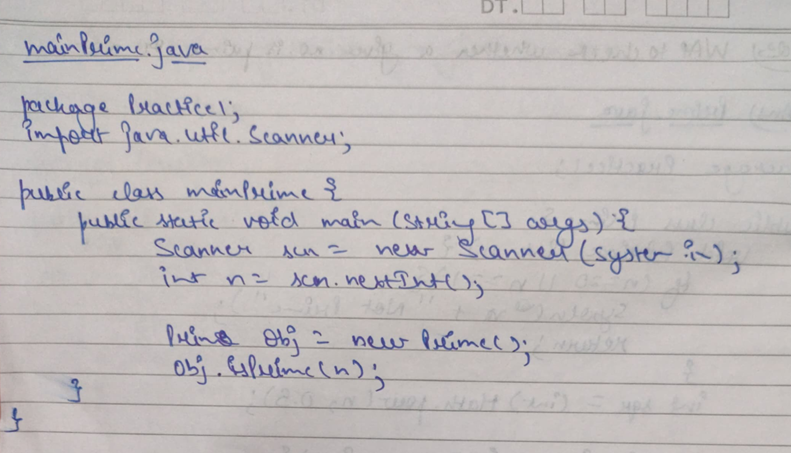 DT.
mainPrime.java
package Practice1;
import java.util.Scanner;
public class mainPrime {
public static void main (String [] args) {
Scanner scn = new Scanner (System.in);
int n = scn.nextInt();
Prime obj = new Prime();
obj.isPrime(n);
}
}